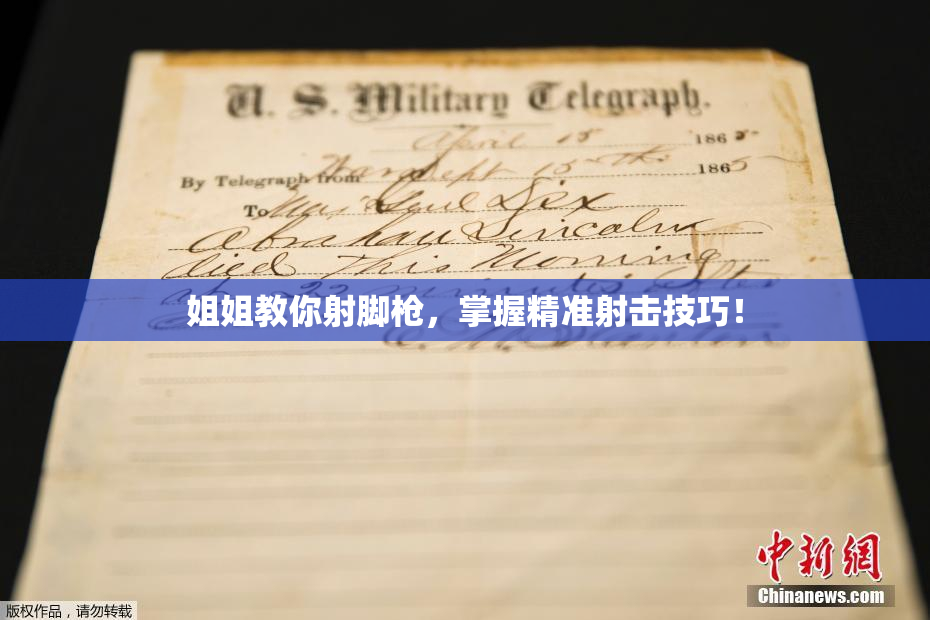 U. S. Military Telegraph.
April 15 1865
By Telegraph from War Dept 15th 1865
To Maj Genl Dix
Abraham Lincoln
died This Morning
at 22 minutes after
姐姐教你射脚枪，掌握精准射击技巧！
Stanton
中新网
Chinanews.com
版权作品，请勿转载